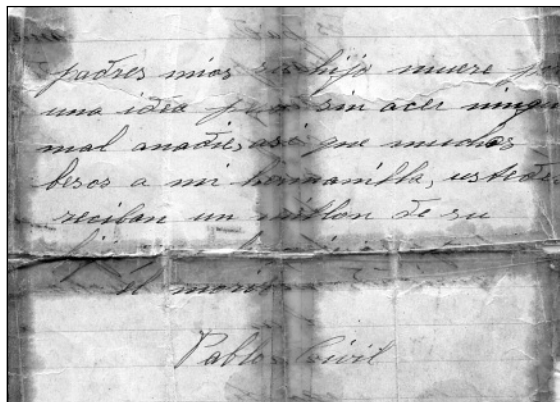 padres mios su hijo muere por
una idea pero sin acer ning
mal anadie, asi que muchos
besos a mi hermanilla, ustedes
reciban un millon de su
el morir
Pablo Civil